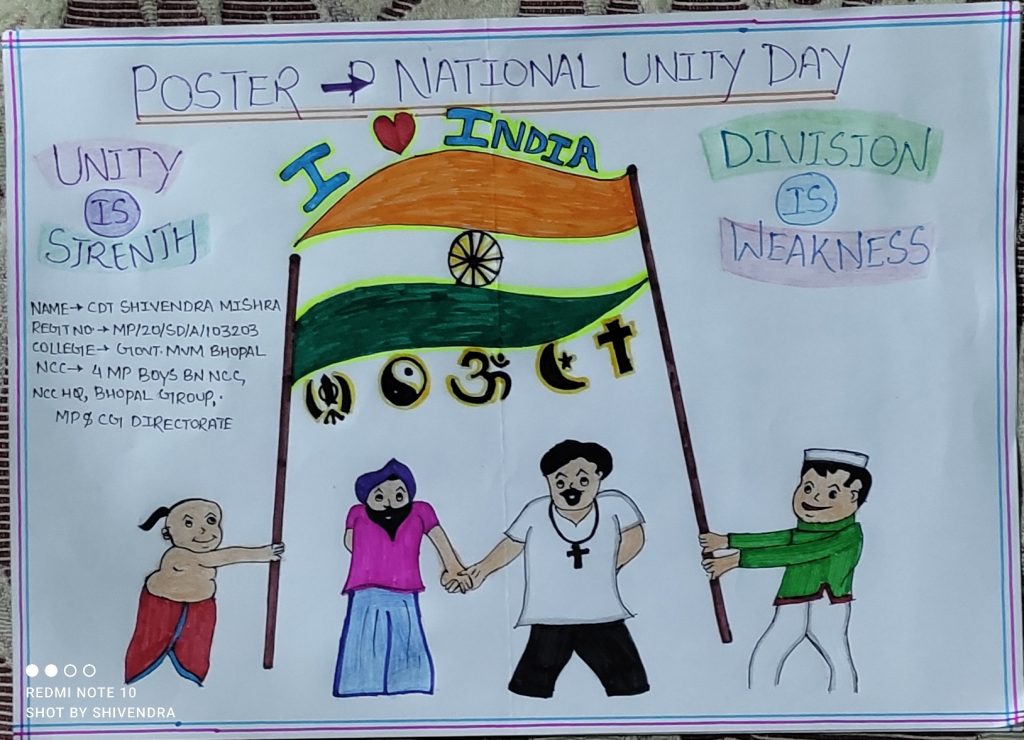 POSTER → NATIONAL UNITY DAY
I ❤ INDIA
UNITY
IS
STRENTH
DIVISION
IS
WEAKNESS
NAME → CDT SHIVENDRA MISHRA
REGT NO → MP/20/SD/A/103203
COLLEGE → GOVT. MVM BHOPAL
NCC → 4 MP BOYS BN NCC,
NCC HQ, BHOPAL GROUP,
MP & CG DIRECTORATE
REDMI NOTE 10
SHOT BY SHIVENDRA